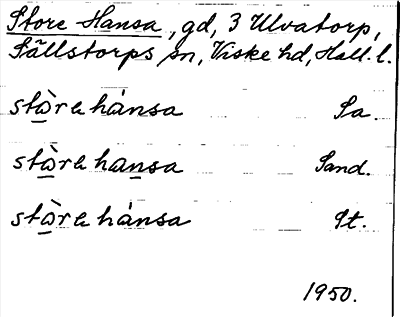 Store Hansa, gd, 3 Ulvatorp,
Sällstorps sn, Viske hd, Hall. l.
stò̱rə hánsa Sa.
stò̱rə hansa Sand.
stò̱rə hánsa St.
1950.